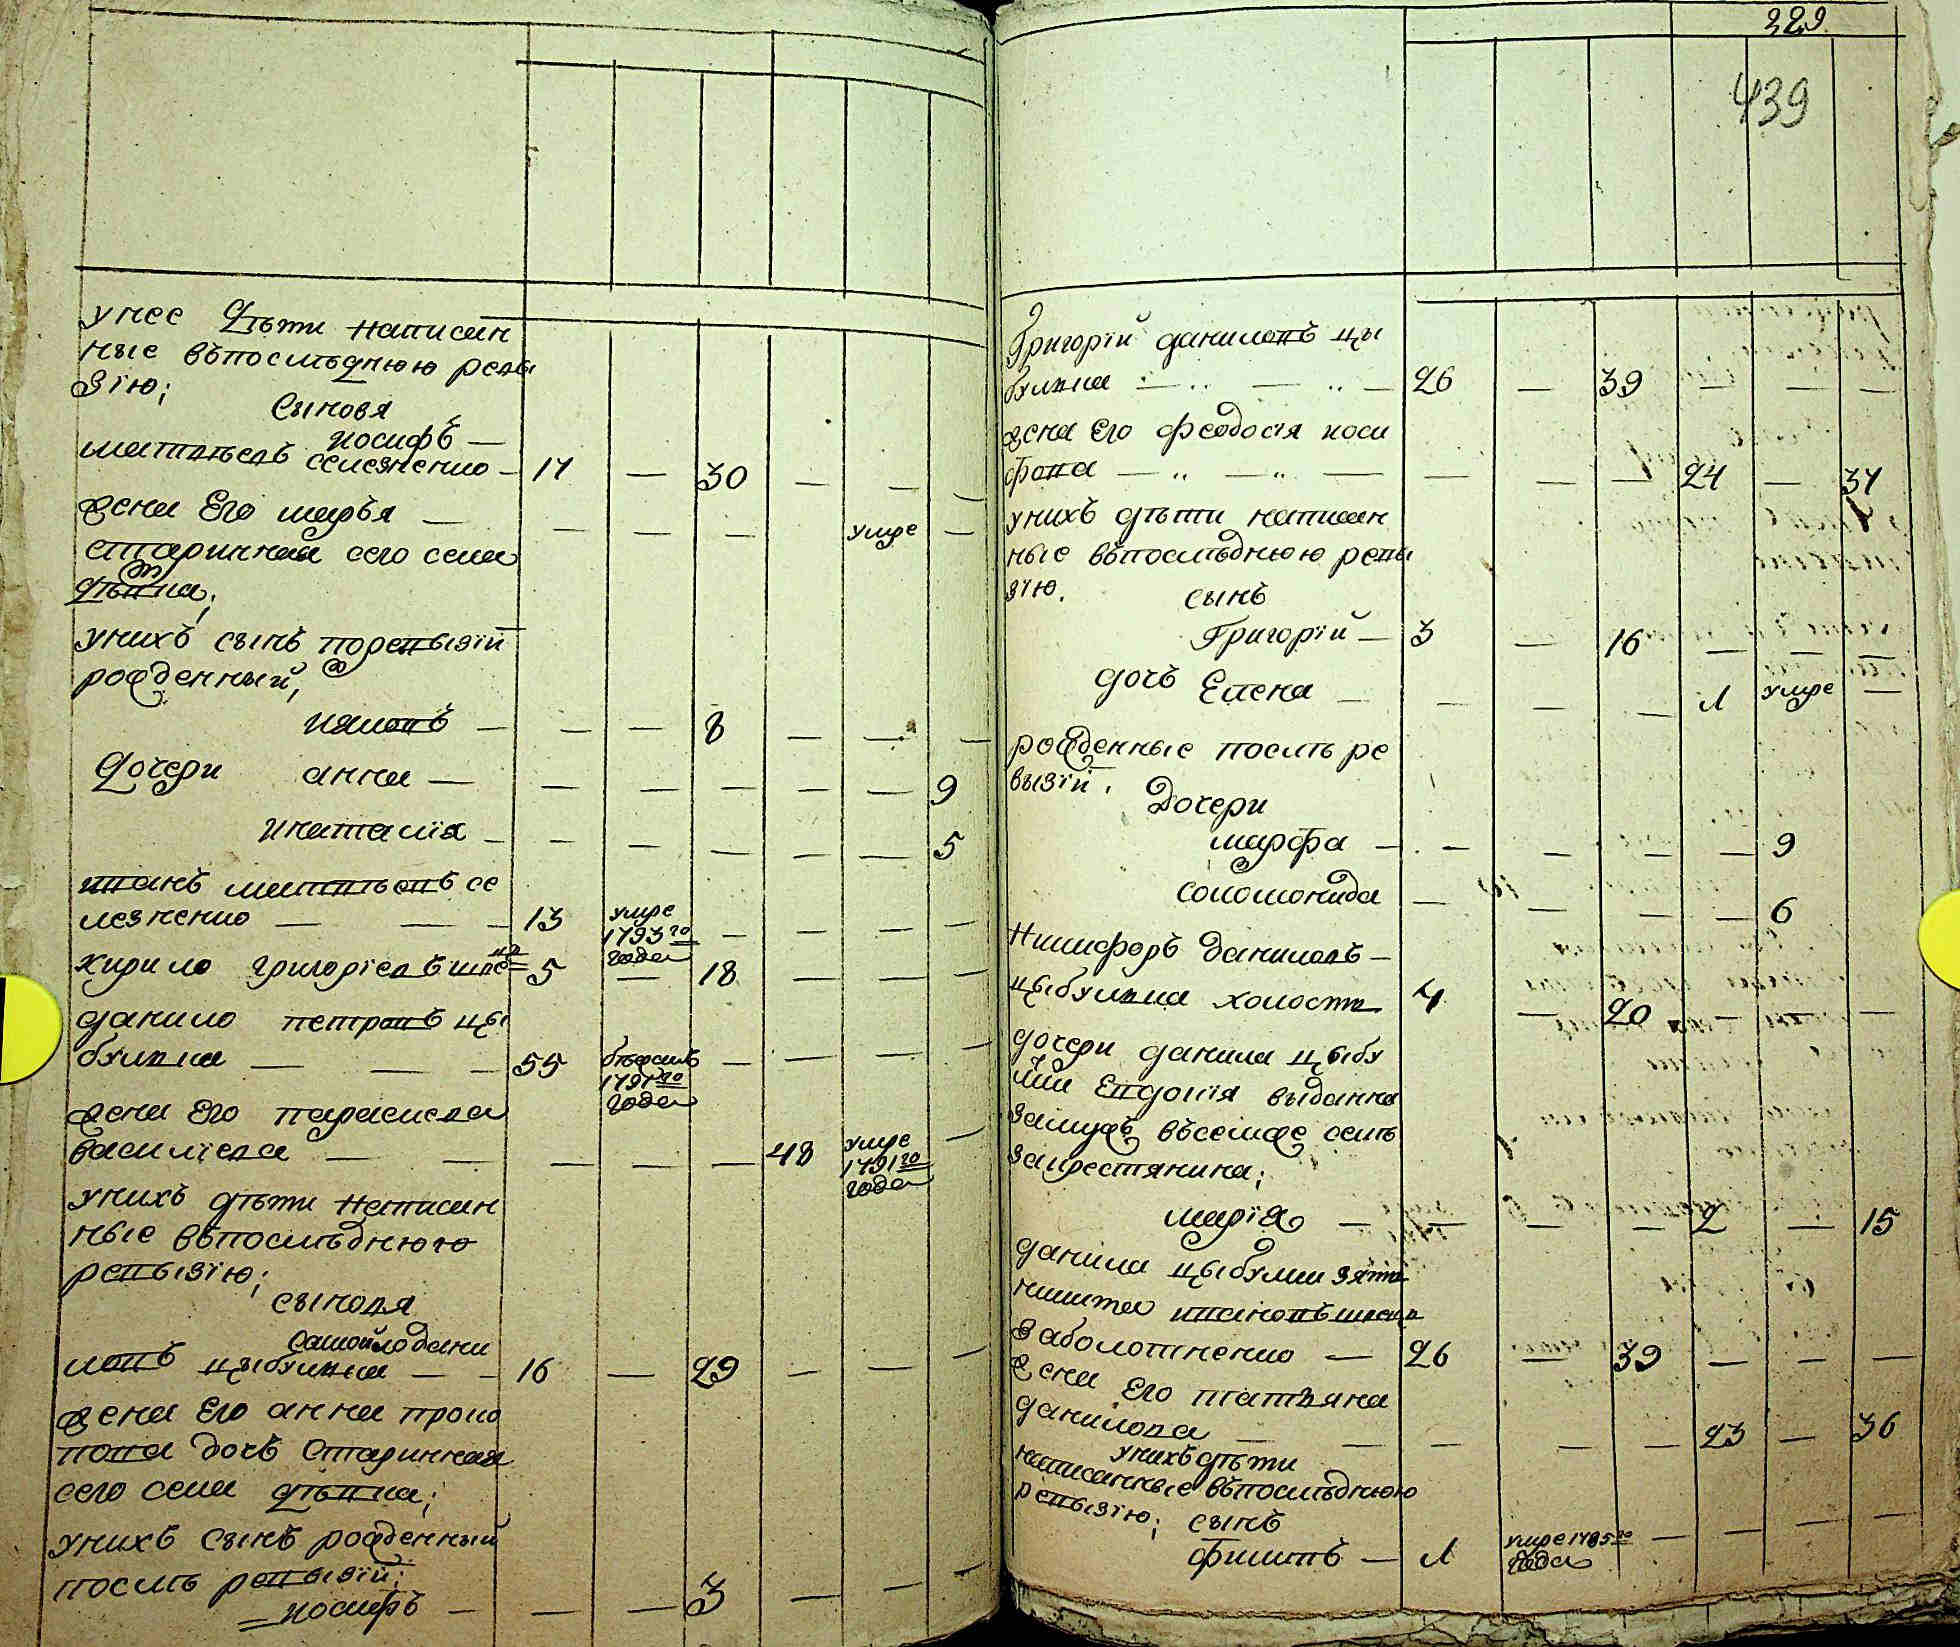 унее Дѣти написан
ные въпослѣднюю ревы
зїю;
Сыновя
иосифъ —
матвѣевъ селезненко — 17 — 30 — — —
жена Его марья — — — — умре —
старинная сего села
дѣвка;
унихъ сынъ поревызїи
рожденный,
яковъ — — — 8 — — —
Дочери анна — — — — — — 9
инаталїя — — — — — — 5
иванъ матвѣевъ се
лезненко — — — 13 умре 1793го года — — — —
кирило григорїевъ 5 — 18 — — —
данило петровъ цы
булка — — — 55 бѣжалъ 1791го года — — — —
жена Его параскева
василїева — — — — — 48 умре 1791го года —
унихъ дѣти написан
ные въпослѣднюю
ревызїю;
сыновя
самойло дани
ловъ цыбулка — — 16 — 29 — — —
жена Его анна проко
пова дочь Старинная
сего села дѣвка;
унихъ сынъ рожденный
послѣ ревызїи;
иосифъ — — — 3 — — —
229
439
Григорїй даниловъ цы
булка — — — 26 — 39 — — —
жена Его феодосїя иоси
фова — — — — — — 24 — 37
унихъ дѣти написан
ные въпослѣднюю ревы
зїю.
сынъ
Григорїй — 3 — 16 — — —
дочь Елена — — — — 1 умре —
рожденные послѣ ре
вызїи.
Дочери
марфа — — — — — 9
соломонида — — — — 6
Никифоръ Даниловъ —
цыбулка холостъ 7 — 20 — — —
дочери данила цыбу
лки Евдокїя выданна
замужъ въсемже селѣ
закрестянина;
марїя — — — — 2 — 15
данила цыбулки зять
никита ивановъ
заболотненко — 26 — 39 — — —
жена Его татьяна
данилова — — — — — 23 — 36
унихъ дѣти
написанные въпослѣднюю
ревызїю; сынъ
филипъ — 1 умре 1785го года — — — —